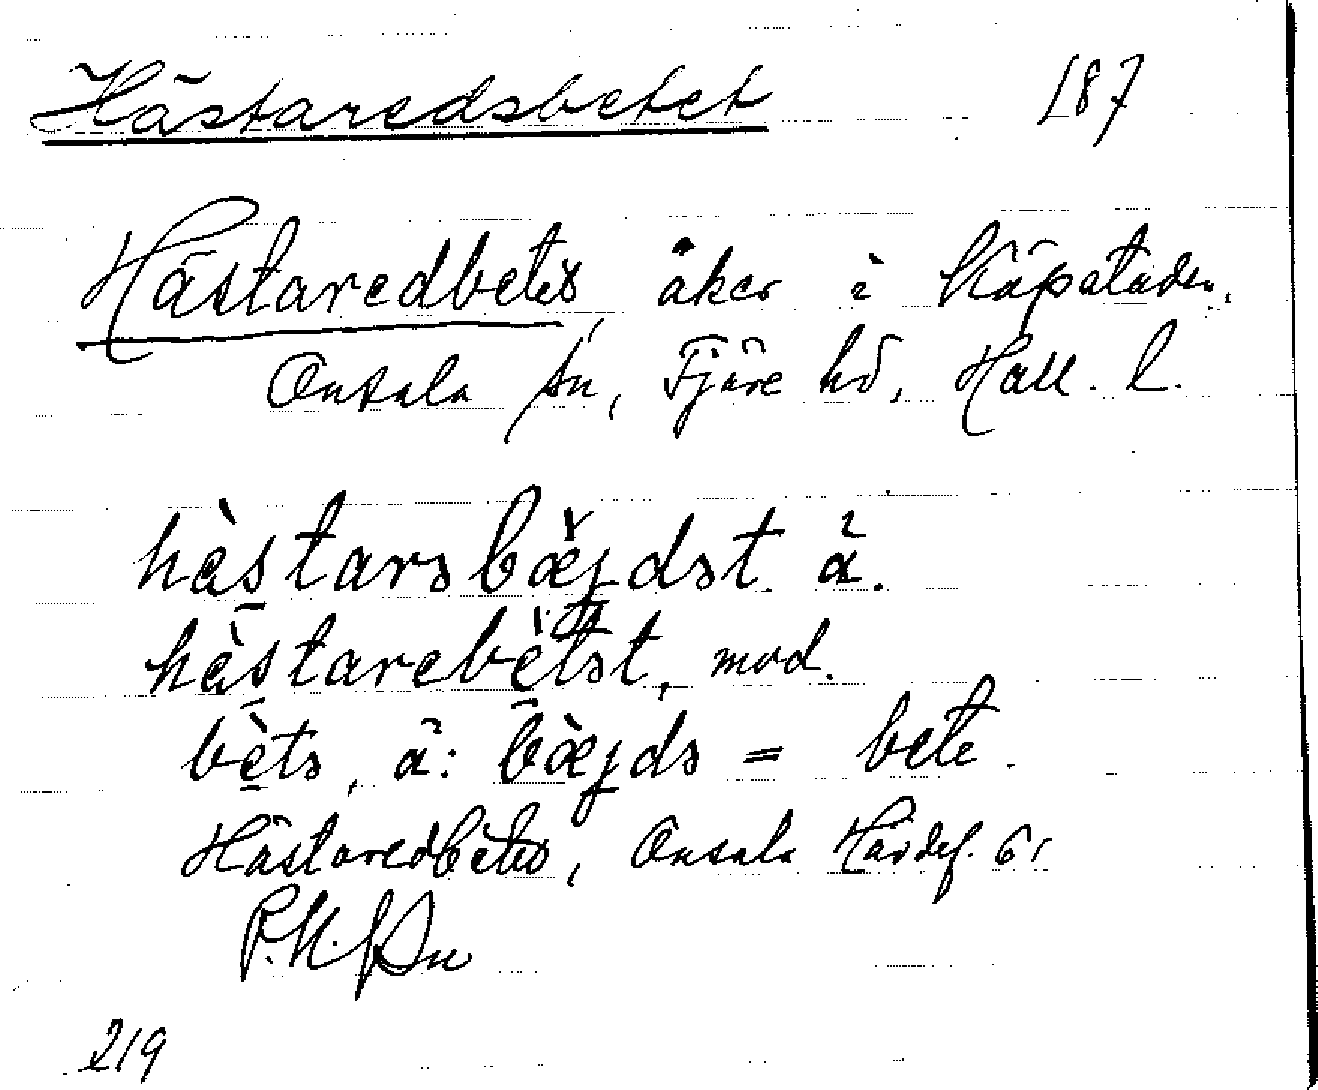 Hästaredsbetet 187
Hästaredbetet, åker i Köpstaden,
Onsala sn, Fjäre hd, Hall. l.
hàstarsbæ̀jdst ä.
hàstarebètst, mod.
bèts, ä: bæ̀jds = bete.
Hästaredbetes, Onsala Havdef. 61
219